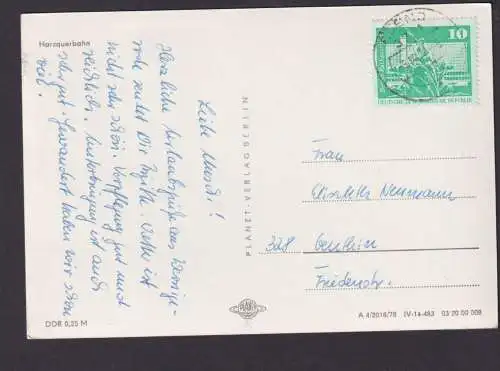 Harzquerbahn
Liebe Mandi!
Herzliche Urlaubsgrüße aus Wernige-
rode sendet Dir Wetter ist
nicht sehr schön. Verpflegung gut und
reichlich. Unterbringung ist auch
sehr gut. Gewandert haben wir schon
viel!
DDR 0,25 M
PLANET-VERLAG BERLIN
PLANET
10
DEUTSCHE DEMOKRATISCHE REPUBLIK
Frau
Elisabeth Neumann
Genthin
Friedenstr.
A 4/2016/78 IV-14-483 03 20 00 008